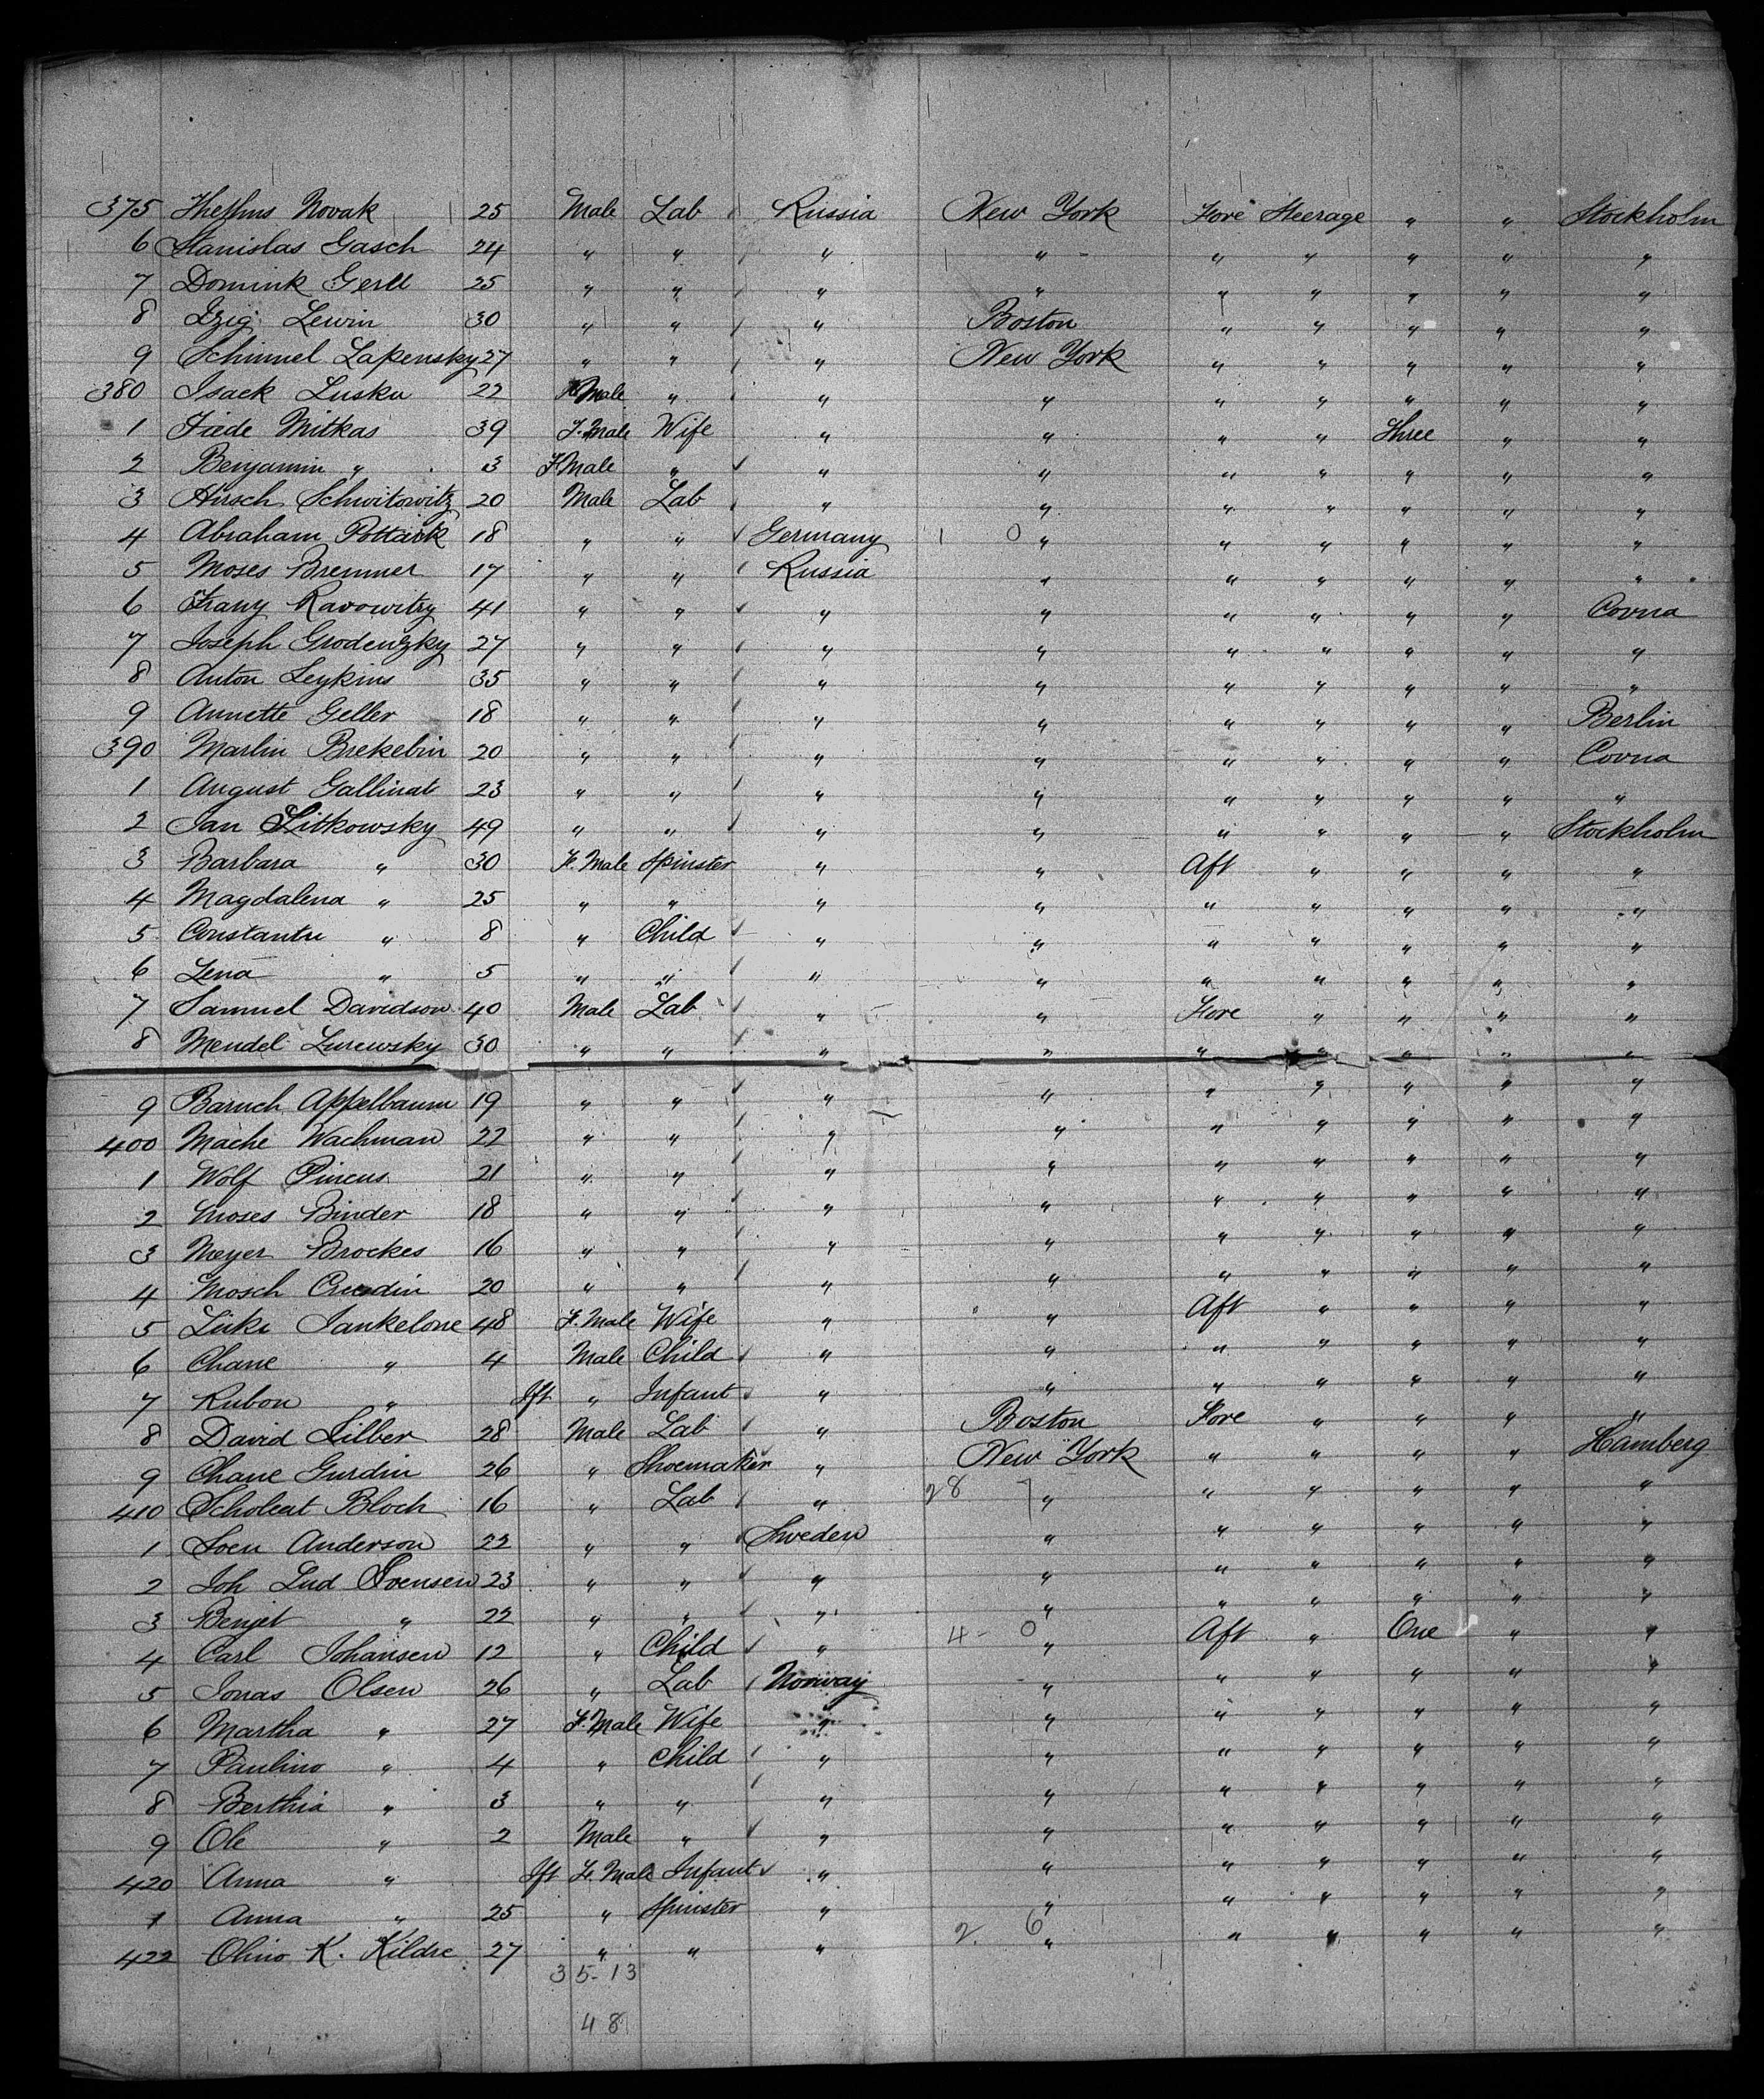 375 Novak 25 Male Lab Russia New York Fore Steerage " " Stockholm
6 Stanislas Gasch 24 " " " " " " " " "
7 Domink Gerll 25 " " " " " " " " "
8 Izig Lewin 30 " " " Boston " " " " "
9 Schimmel Lapensky 27 " " " New York " " " " "
380 Isack Lusku 22 Male " " " " " " " "
1 Fiede Mitkas 39 F. Male Wife " " " " Three " "
2 Benjamin " 3 F Male " " " " " " " "
3 Hirsch Schwitowitz 20 Male Lab " " " " " " "
4 Abraham Pottack 18 " " Germany 1 0 " " " " " "
5 Moses Bremner 17 " " Russia " " " " " "
6 Franz Ravowitzy 41 " " " " " " " " Covna
7 Joseph Grodenzky 27 " " " " " " " " "
8 Anton Leykins 35 " " " " " " " " "
9 Annette Geller 18 " " " " " " " " Berlin
390 Marlin Brekebin 20 " " " " " " " " Covna
1 August Gallinat 23 " " " " " " " " "
2 Jan Litkowsky 49 " " " " " " " " Stockholm
3 Barbara " 30 Fe. Male Spinster " " Aft " " " "
4 Magdalena " 25 " " " " " " " " "
5 " 8 " Child " " " " " " "
6 Lena " 5 " " " " " " " " "
7 Samuel Davidson 40 Male Lab " " Fore " " " "
8 Mendel Lurewsky 30 " " " " " " " " "
9 Baruch Appelbaum 19 " " " " " " " " "
400 Mache Wachman 22 " " " " " " " " "
1 Wolf Pincus 21 " " " " " " " " "
2 Moses Binder 18 " " " " " " " " "
3 Meyer Brockes 16 " " " " " " " " "
4 Mosch 20 " " " " " " " " "
5 Liske Jankelone 48 F. Male Wife " " Aft " " " "
6 Chane " 4 Male Child " " " " " " "
7 Rubon " Ift " Infant " " " " " " "
8 David Silber 28 Male Lab " Boston Fore " " " "
9 Chane Gurdin 26 " Shoemaker " New York " " " " Hamberg
410 Scholeat Bloch 16 " Lab " 28 7 " " " " " "
1 Sven Anderson 22 " " Sweden " " " " " "
2 Joh Lud Svensen 23 " " " " " " " " "
3 Benjet " 22 " " " " " " " " "
4 Carl Johansen 12 " Child " 4 - 0 " Aft " One " "
5 Jonas Olsen 26 " Lab Norway " " " " " "
6 Martha " 27 F. Male Wife " " " " " " "
7 Paulino " 4 " Child " " " " " " "
8 Berthia " 3 " " " " " " " " "
9 Ole " 2 Male " " " " " " " "
420 Anna " Ift Fe. Male Infant " " " " " " "
1 Anna " 25 " Spinster " " " " " " "
422 Olino K. Kildre 27 " " " 2 6 " " " " " "
35-13
48